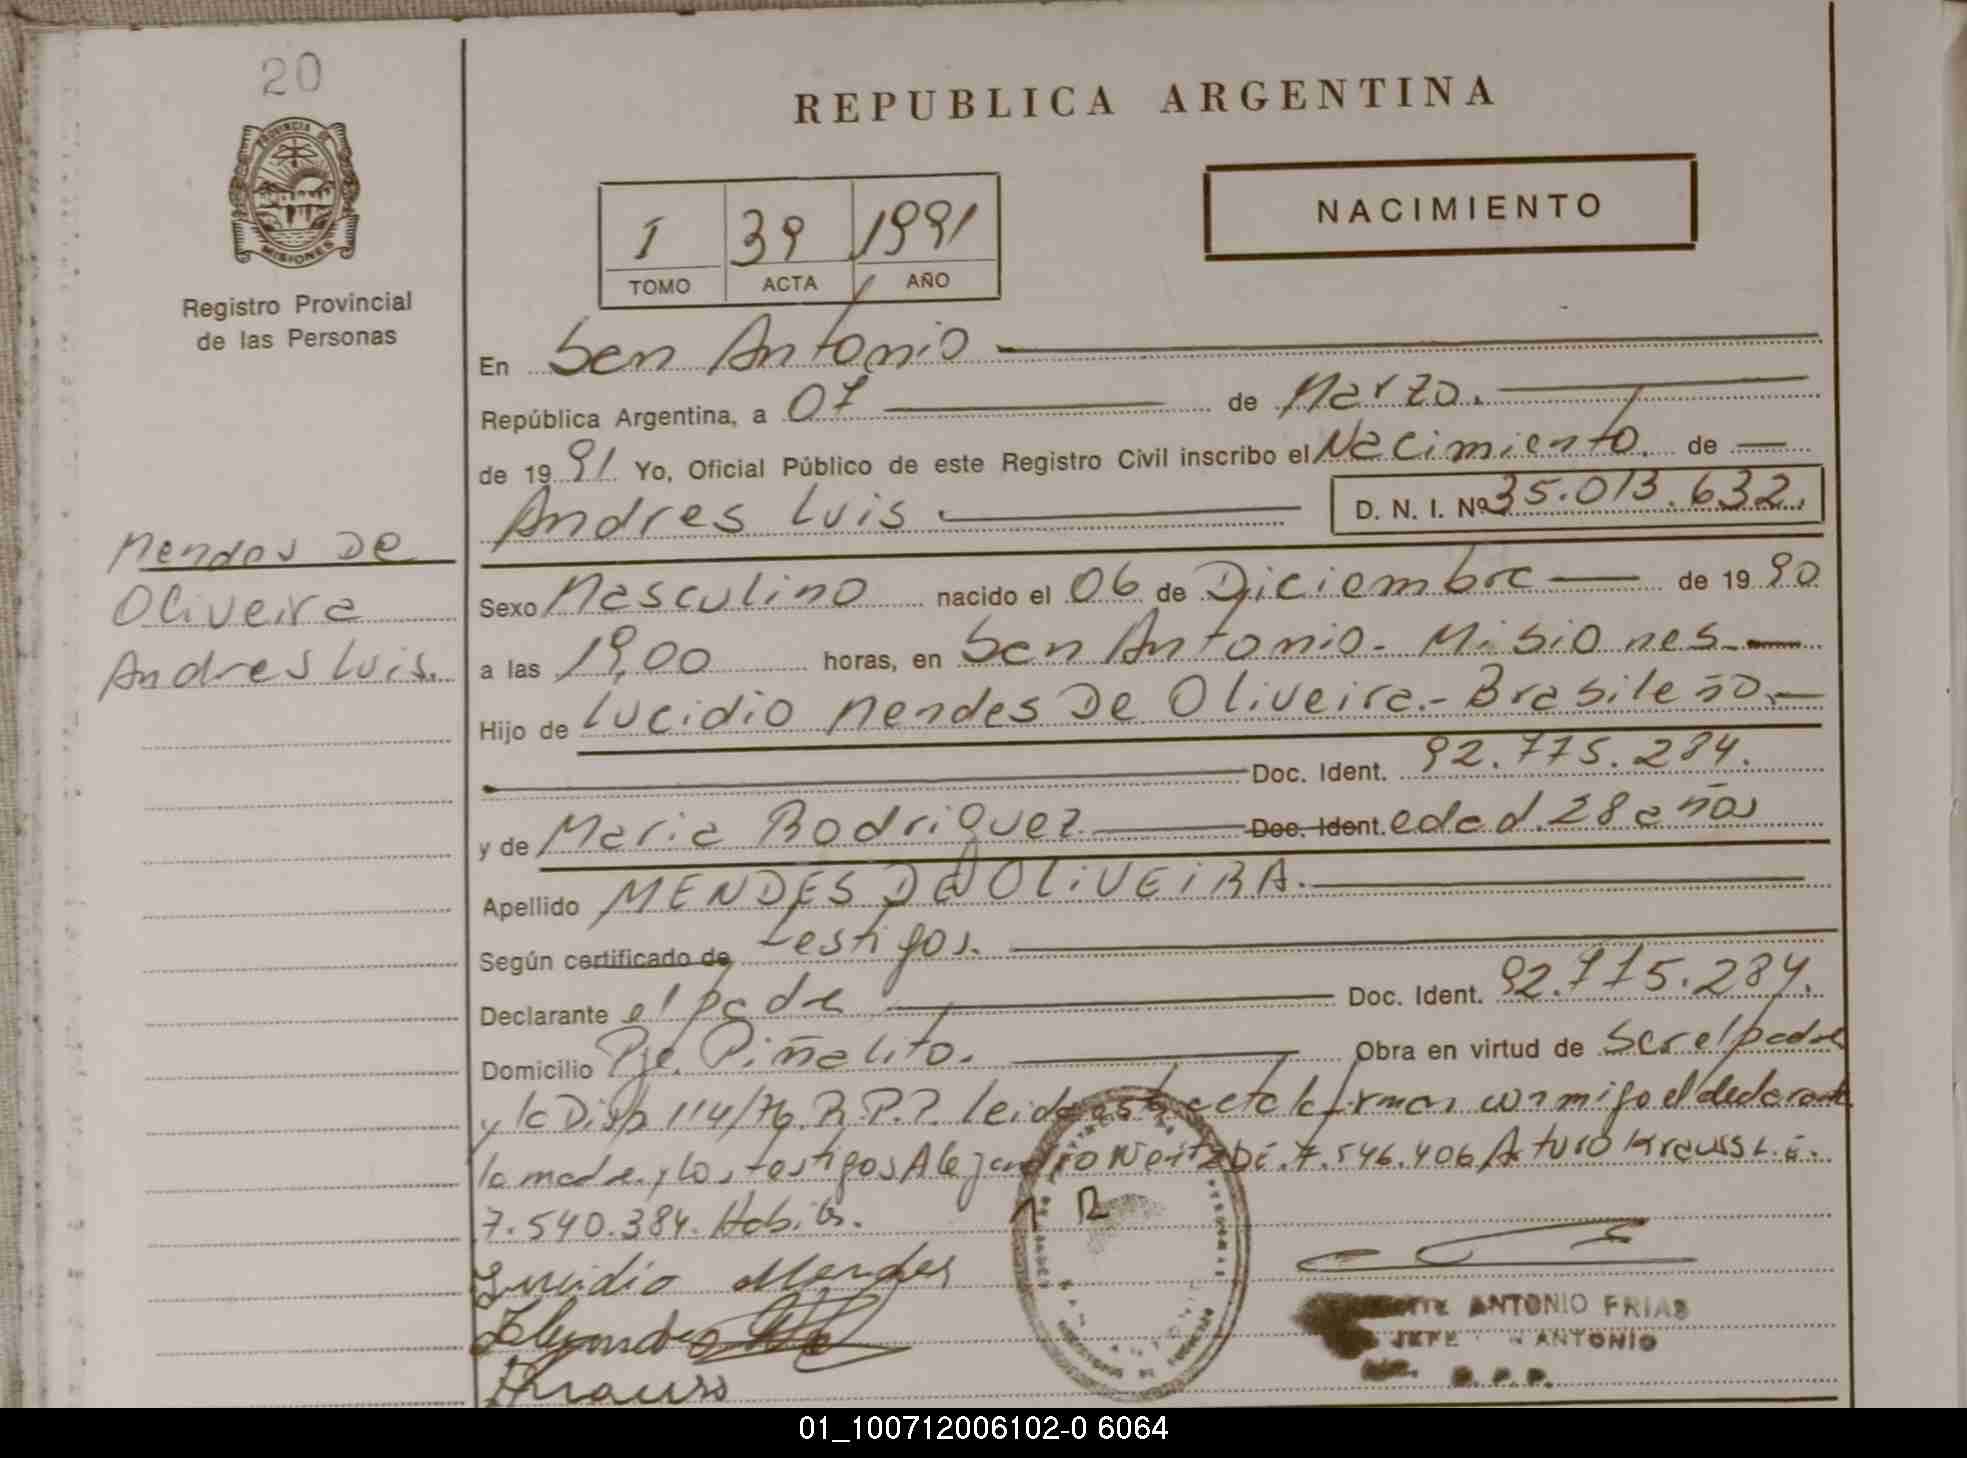 20
PROVINCIA DE
MISIONES
Registro Provincial
de las Personas
Mendes De
Oliveira
Andres Luis.
REPUBLICA ARGENTINA
NACIMIENTO
I 39 1991
TOMO ACTA AÑO
En San Antonio
República Argentina, a 07 de Marzo.
de 1991 Yo, Oficial Público de este Registro Civil inscribo el Nacimiento. de
Andres Luis D. N. I. Nº 35.013.632.
Sexo Masculino nacido el 06 de Diciembre de 1990
a las 19,00 horas, en San Antonio - Misiones
Hijo de Lucidio Mendes De Oliveira.- Brasileño.-
Doc. Ident. 92.775.284.
y de Maria Rodriguez Doc. Ident. edad 28 años
Apellido MENDES DE OLIVEIRA.
Según certificado de testigos.
Declarante el padre Doc. Ident. 92.775.284.
Domicilio Pje. Piñalito. Obra en virtud de ser el padre
y la Disp 114/76. R.P.P. leida esta acta la firman conmigo el declarante
la madre y los testigos Alejandro D.I. 7.546.406 Arturo Krauss L.E.
7.540.384. Habiles.
Lucidio Mendes
Krauss
ANTONIO FRIAS
JEFE ANTONIO
R. P. P.
01_100712006102-0 6064